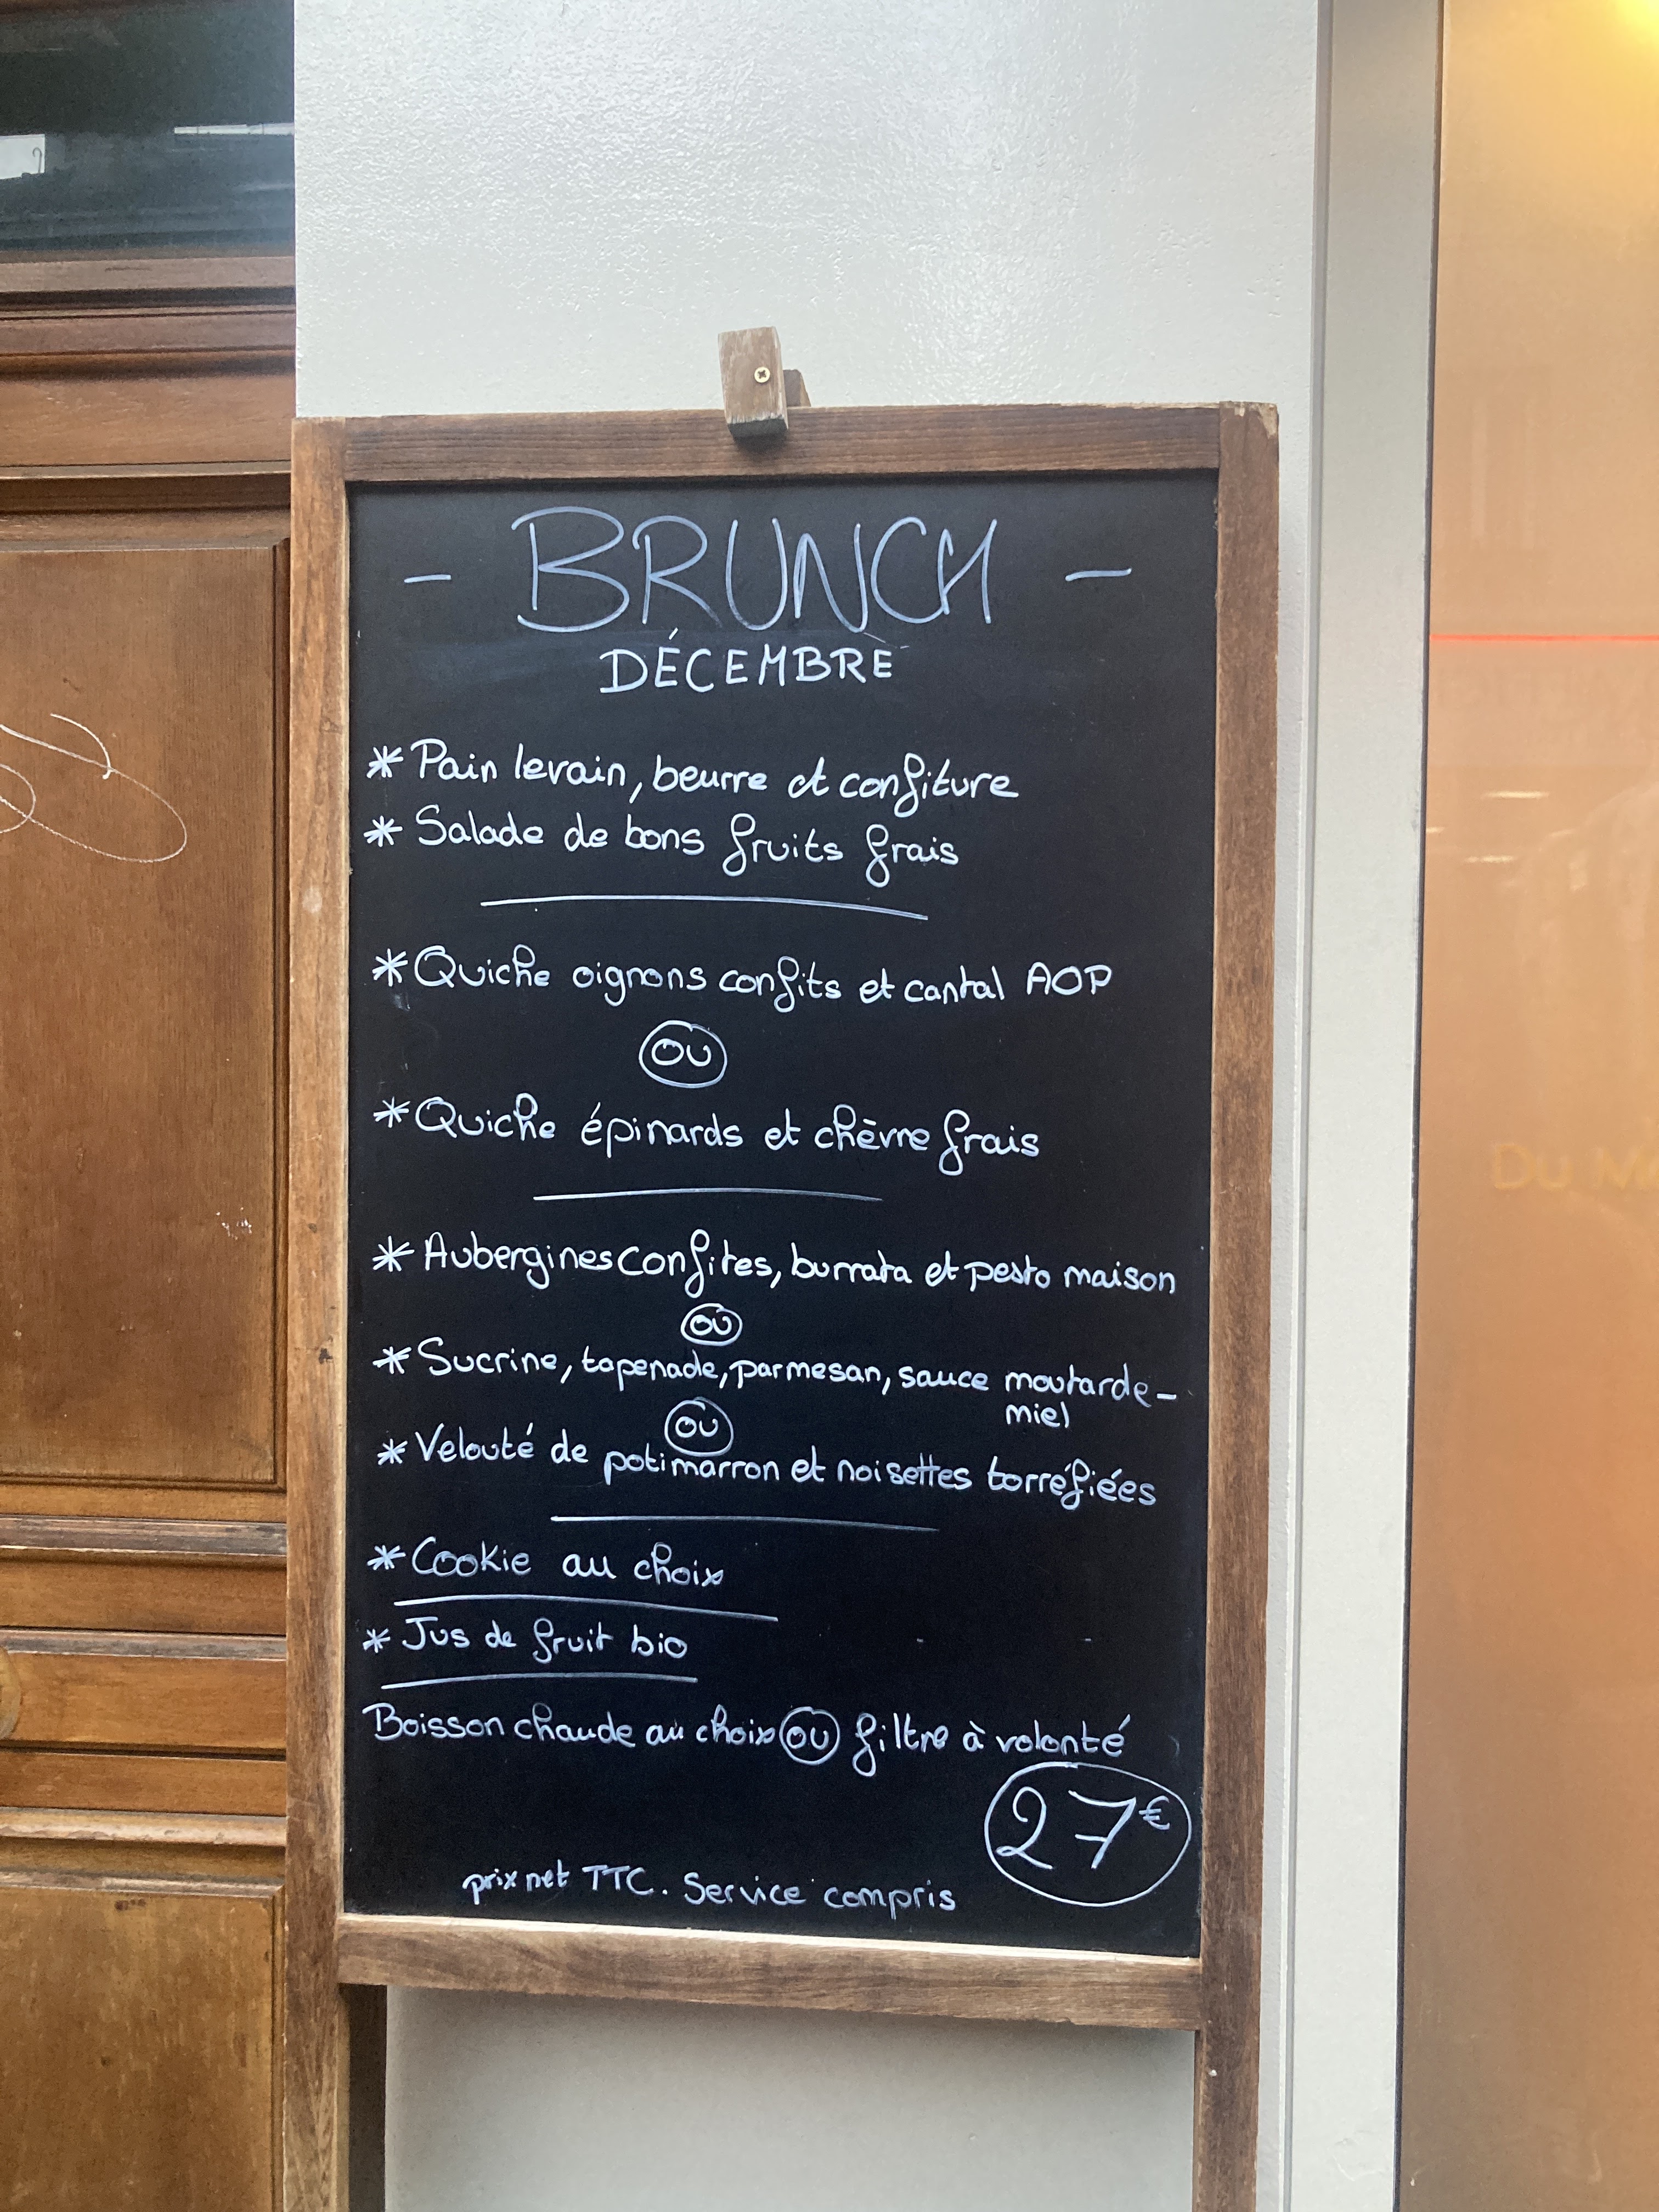 - BRUNCH -
DÉCEMBRE
* Pain levain, beurre et confiture
* Salade de bons fruits frais
* Quiche oignons confits et cantal AOP
OU
* Quiche épinards et chèvre frais
* Aubergines confites, burrata et pesto maison
OU
* Sucrine, tapenade, parmesan, sauce moutarde-
miel
OU
* Velouté de potimarron et noisettes torréfiées
* Cookie au choix
* Jus de fruit bio
Boisson chaude au choix OU filtre à volonté
27€
prix net TTC. Service compris
Du